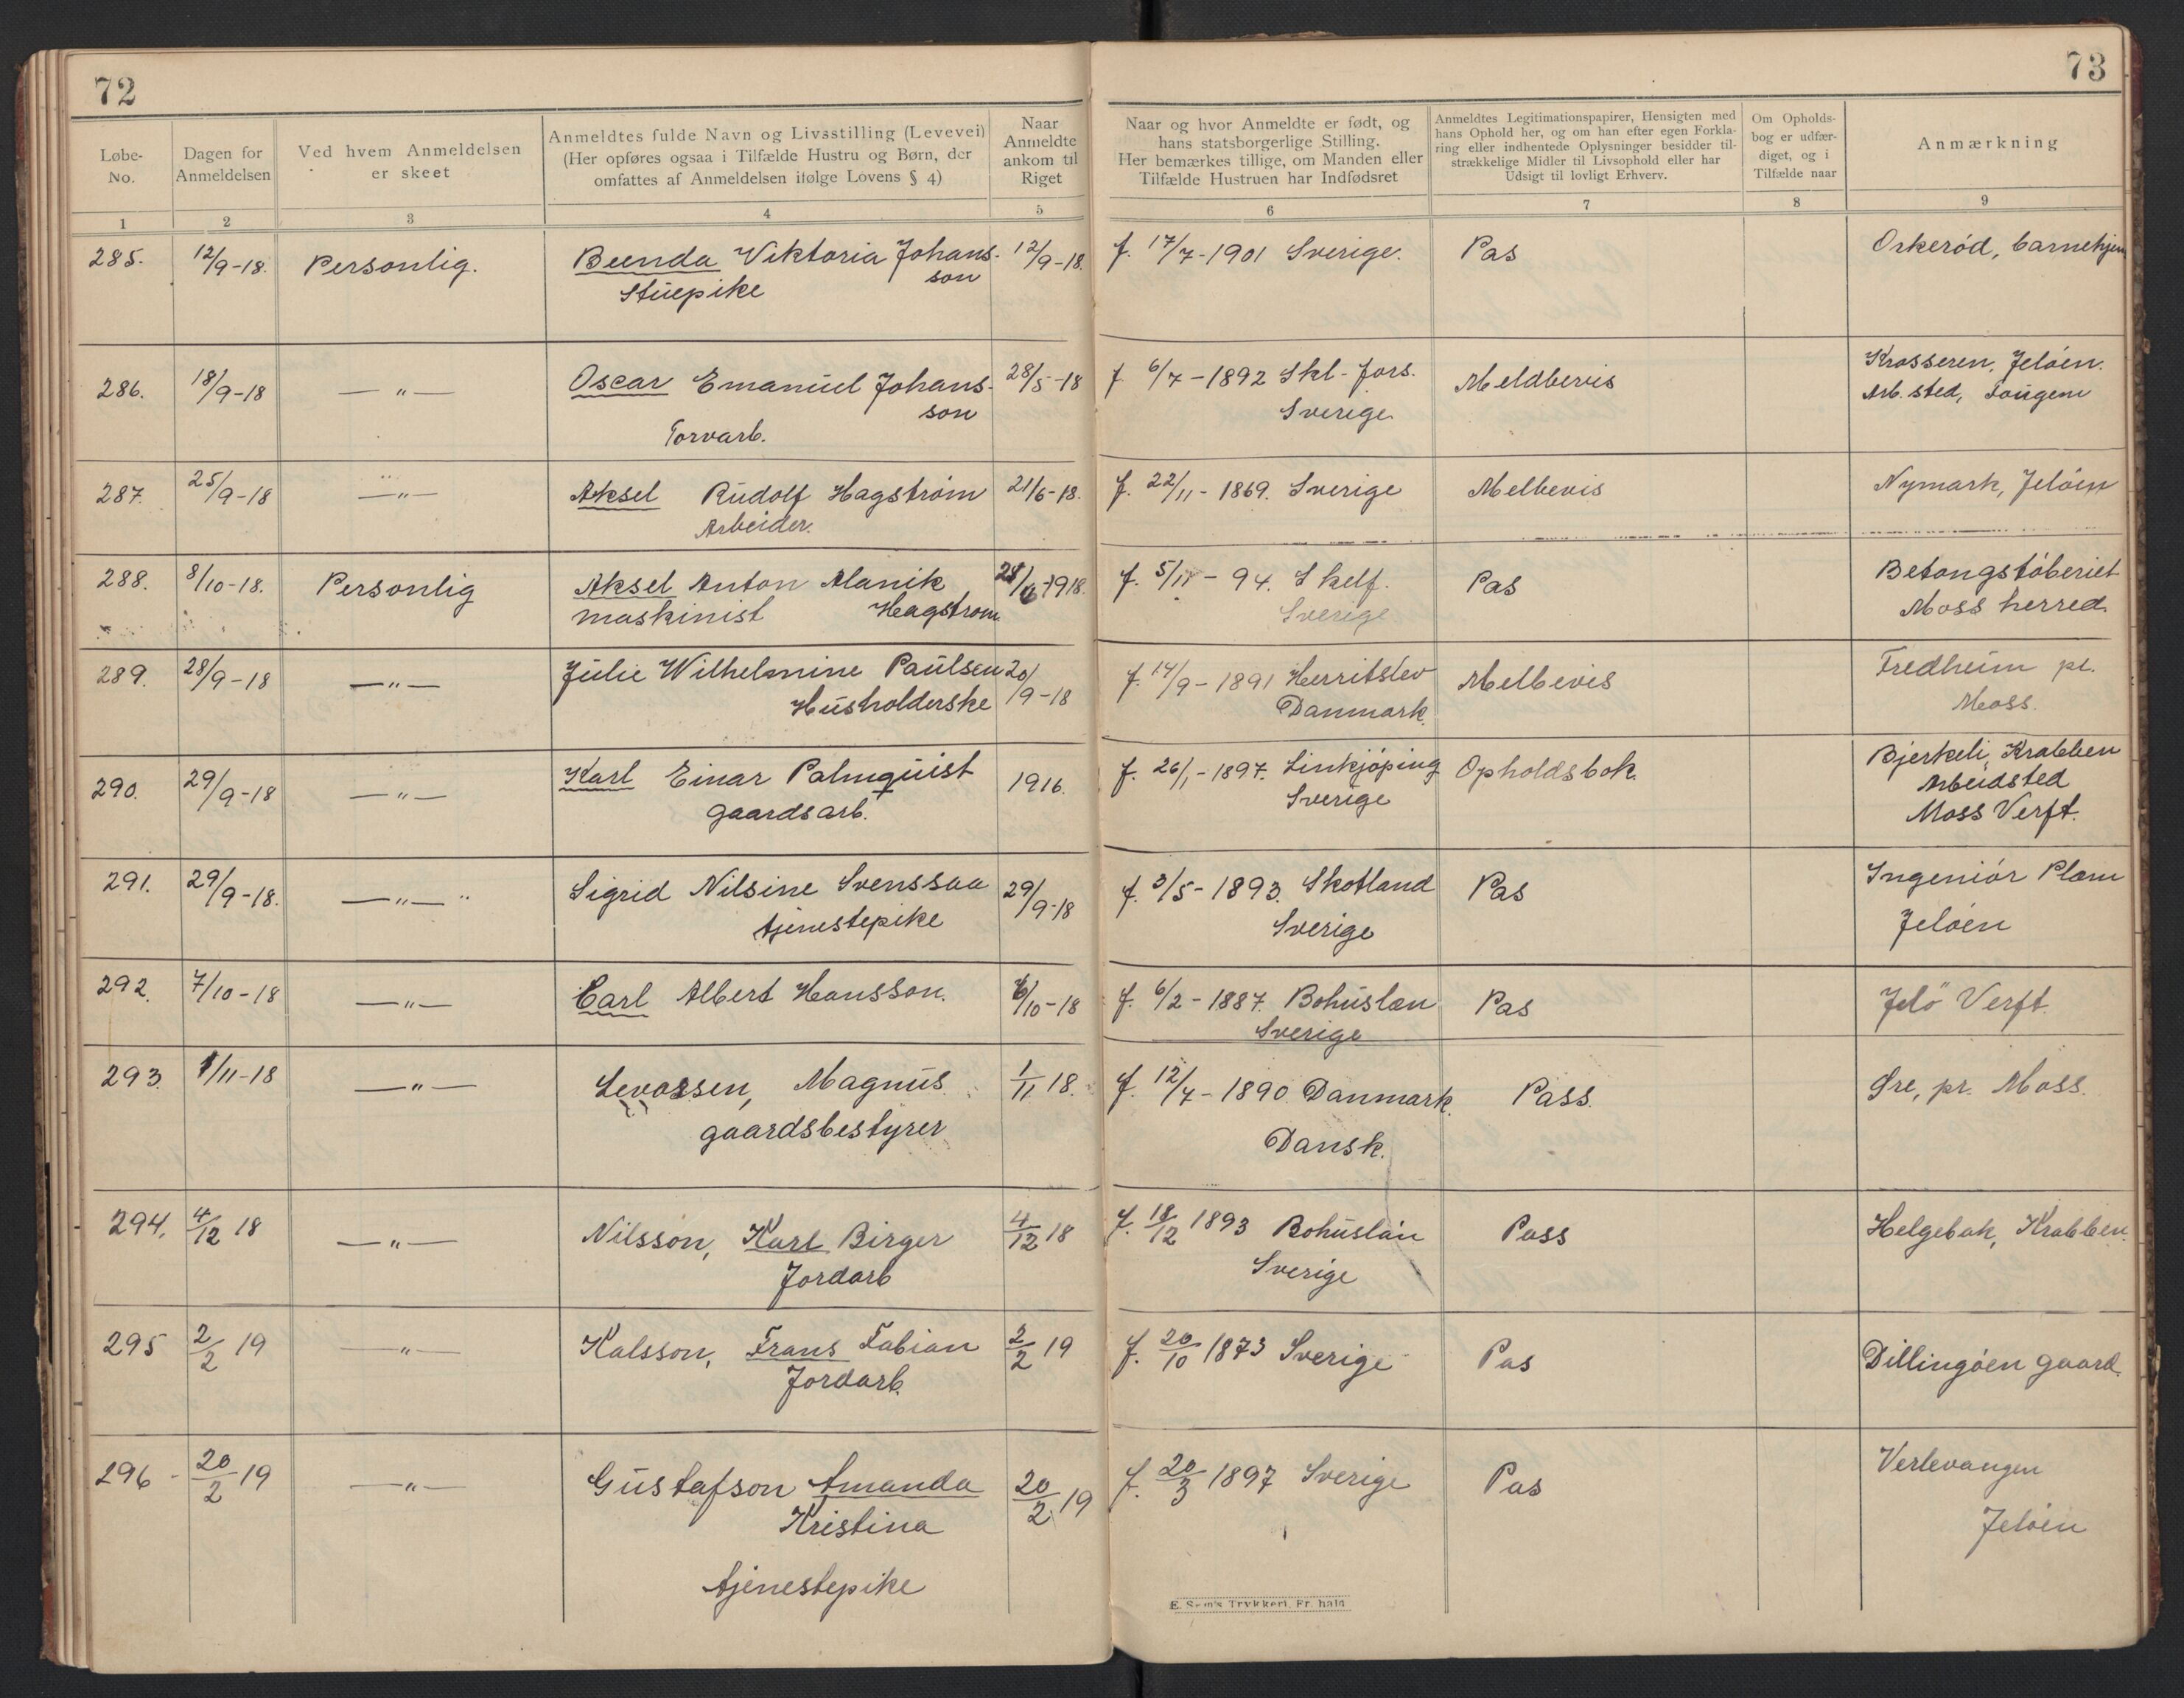 72
73
Løbe-No.
Dagen for Anmeldelsen
Ved hvem Anmeldelsen er skeet
Anmeldtes fulde Navn og Livsstilling (Levevei)
(Her opføres ogsaa i Tilfælde Hustru og Børn, der
omfattes af Anmeldelsen ifølge Lovens § 4)
Naar Anmeldte ankom til Riget
Naar og hvor Anmeldte er født, og
hans statsborgerlige Stilling.
Her bemærkes tillige, om Manden eller
Tilfælde Hustruen har Indfødsret
Anmeldtes Legitimationspapirer, Hensigten med
hans Ophold her, og om han efter egen Forkla-
ring eller indhentede Oplysninger besidder til-
strækkelige Midler til Livsophold eller har
Udsigt til lovligt Erhverv.
Om Opholds-
bog er udfær-
diget, og i
Tilfælde naar
Anmærkning
1 2 3 4 5 6 7 8 9
285. 12/9-18. Personlig. Beenda Viktoria Johans- 12/9-18. f. 17/7-1901 Sverige. Pas Orkerød, barnehjem
son
Stuepike
286. 18/9-18 —"— Oscar Emanuel Johans- 28/5-18 f. 6/7-1892 Skl-fors. Meldbevis Krosseren, Jeløen.
son Sverige. Arb. sted, Tougem
Torvarb.
287. 25/9-18 —"— Aksel Rudolf Hagstrøm 21/6-18. f. 22/11-1869. Sverige Melbevis Nymark, Jeløen
Arbeider.
288. 8/10-18. Personlig Aksel Anton Alanik 1918. f. 5/11-94. Skelf. Pas Betongstøberiet
maskinist Hagstrom. Sverige Moss herred.
289. 28/9-18 —"— Julie Wilhelmine Paulsen 20/9-18 f. 14/9-1891 Herritslev Melbevis Fredheim pr.
Husholderske Danmark. Moss.
290. 29/9-18 —"— Karl Einar Palmquist 1916. f. 26/1-1897. Linkjøping Opholdsbok. Bjerkeli, Krabben
gaardsarb. Sverige Arbeidsted
Moss Verft.
291. 29/9-18. —"— Sigrid Nilsine Svenssaa 29/9-18 f. 3/5-1893. Skotland Pas Ingeniør Plam
tjenestepike Sverige Jeløen
292. 7/10-18 —"— Carl Albert Hansson. 6/10-18 f. 6/2-1887. Bohuslæn Pas Jelö Verft.
Sverige
293. 1/11-18 —"— Levossen, Magnus. 1/11 18. f. 12/4-1890. Danmark. Pass. Øre, pr. Moss.
gaardsbestyrer Dansk.
294. 4/12 18 —"— Nilsson, Karl Birger 4/12 18 f. 18/12 1893 Bohuslän Pass Helgebak, Krabben.
Jordarb Sverige
295 2/2 19 —"— Kalsson, Frans Fabian 2/2 19 f. 20/10 1873 Sverige Pas Dillingøen gaard.
Jordarb.
296 - 20/2 19 —"— Gustafson Amanda 20/2 19 f. 20/3 1897 Sverige Pas Verlevangen
Kristina Jeløen
tjenestepike
E. Sem's Trykkeri, Fr. hald